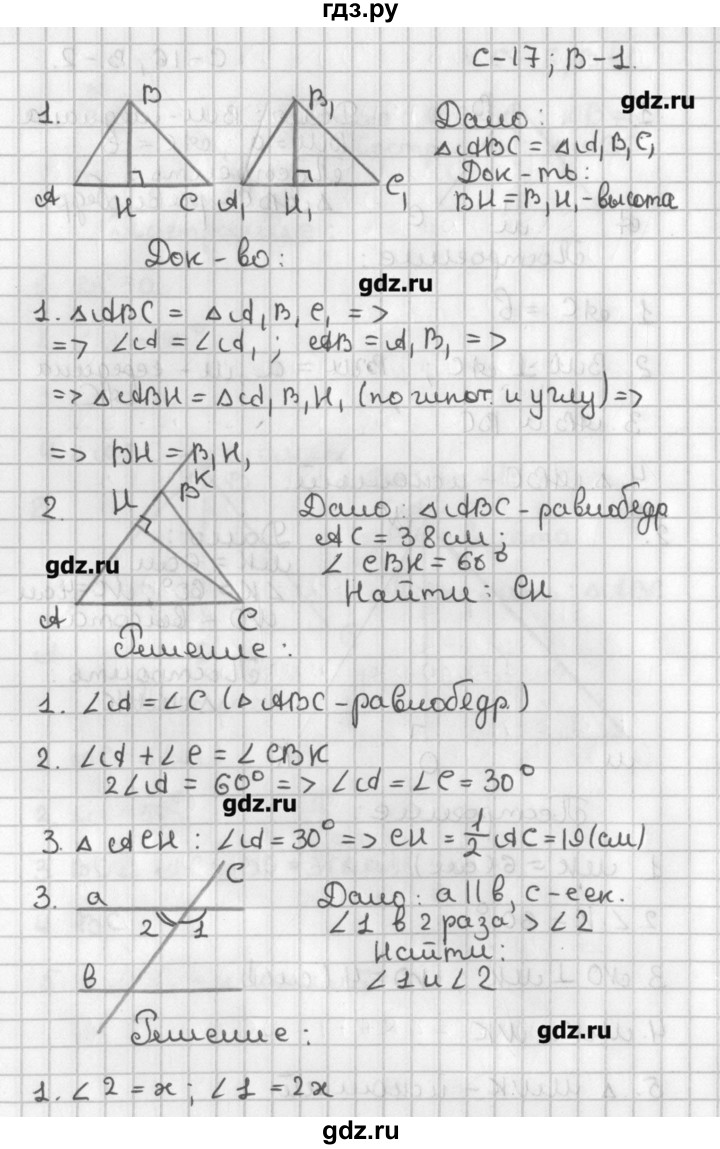 гдз.ру
С-17; В-1.
gdz.ru
1.
B
A
H
C
B₁
A₁
H₁
C₁
Дано:
△ABC = △A₁B₁C₁
Док-ть:
BH = B₁H₁ - высота
Док-во:
gdz.ru
1. △ABC = △A₁B₁C₁ =>
=> ∠A = ∠A₁; AB = A₁B₁ =>
=> △ABH = △A₁B₁H₁ (по гипот. и углу) =>
=> BH = B₁H₁
2.
H
B
K
A
C
gdz.ru
Дано: △ABC - равнобедр
AC = 38 см;
∠CBK = 60°
Найти: CH
Решение:
1. ∠A = ∠C (△ABC - равнобедр.)
2. ∠A + ∠C = ∠CBK
2∠A = 60° => ∠A = ∠C = 30°
gdz.ru
3. △ACH: ∠A = 30° => CH = 1/2 AC = 19 (см)
3.
a
C
2
1
в
Дано: a || в, c - сек.
∠1 в 2 раза > ∠2
Найти:
∠1 и ∠2
Решение:
gdz.ru
1. ∠2 = x; ∠1 = 2x
gdz.ru